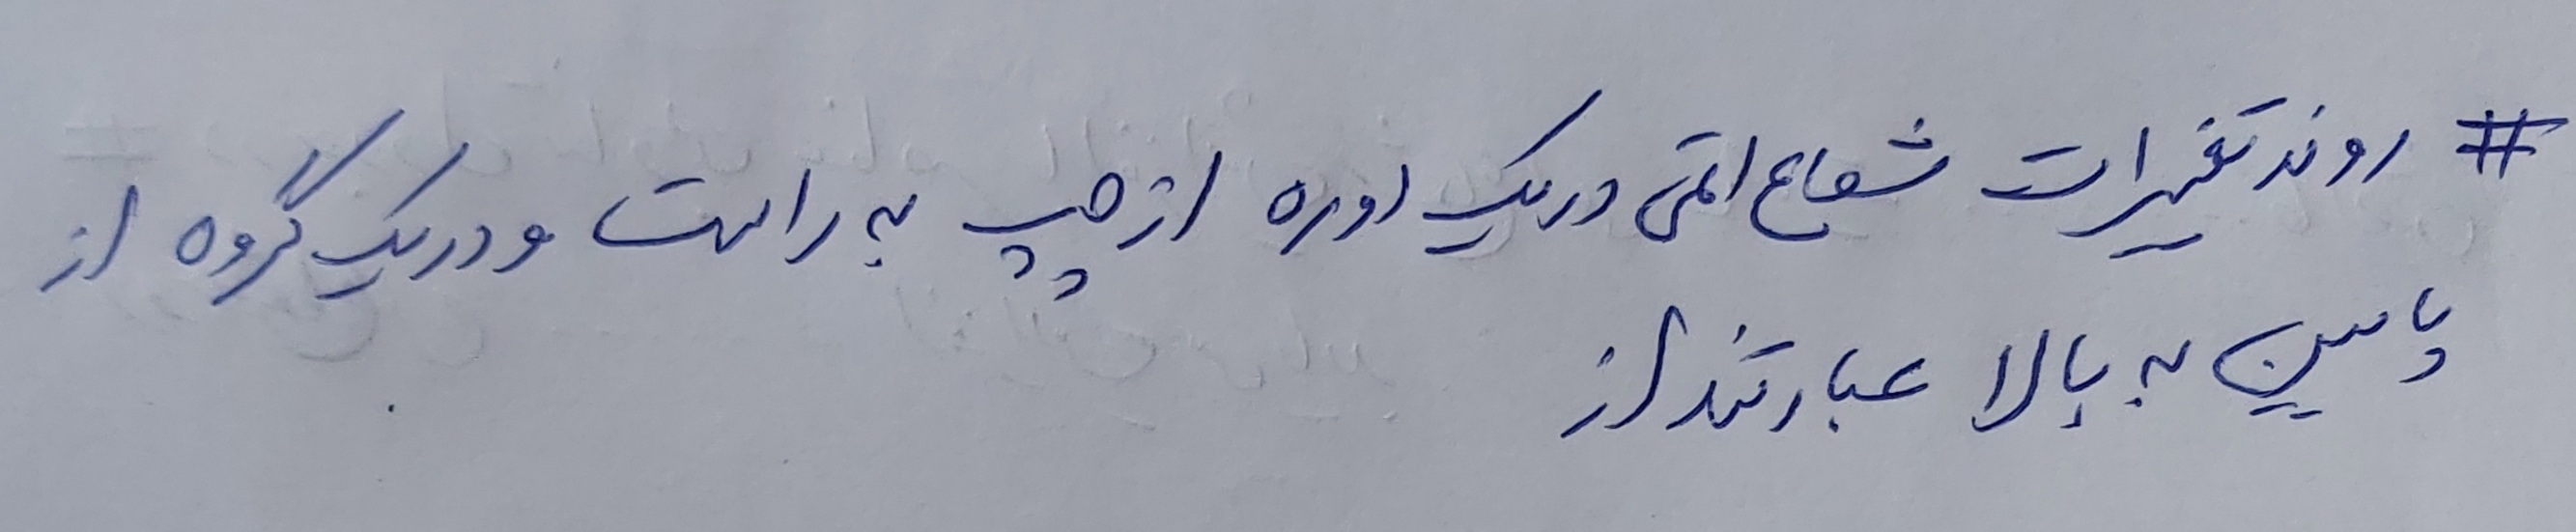 # روند تغییرات شعاع اتمی در یک دوره از چپ به راست و در یک گروه از
پایین به بالا عبارتند از